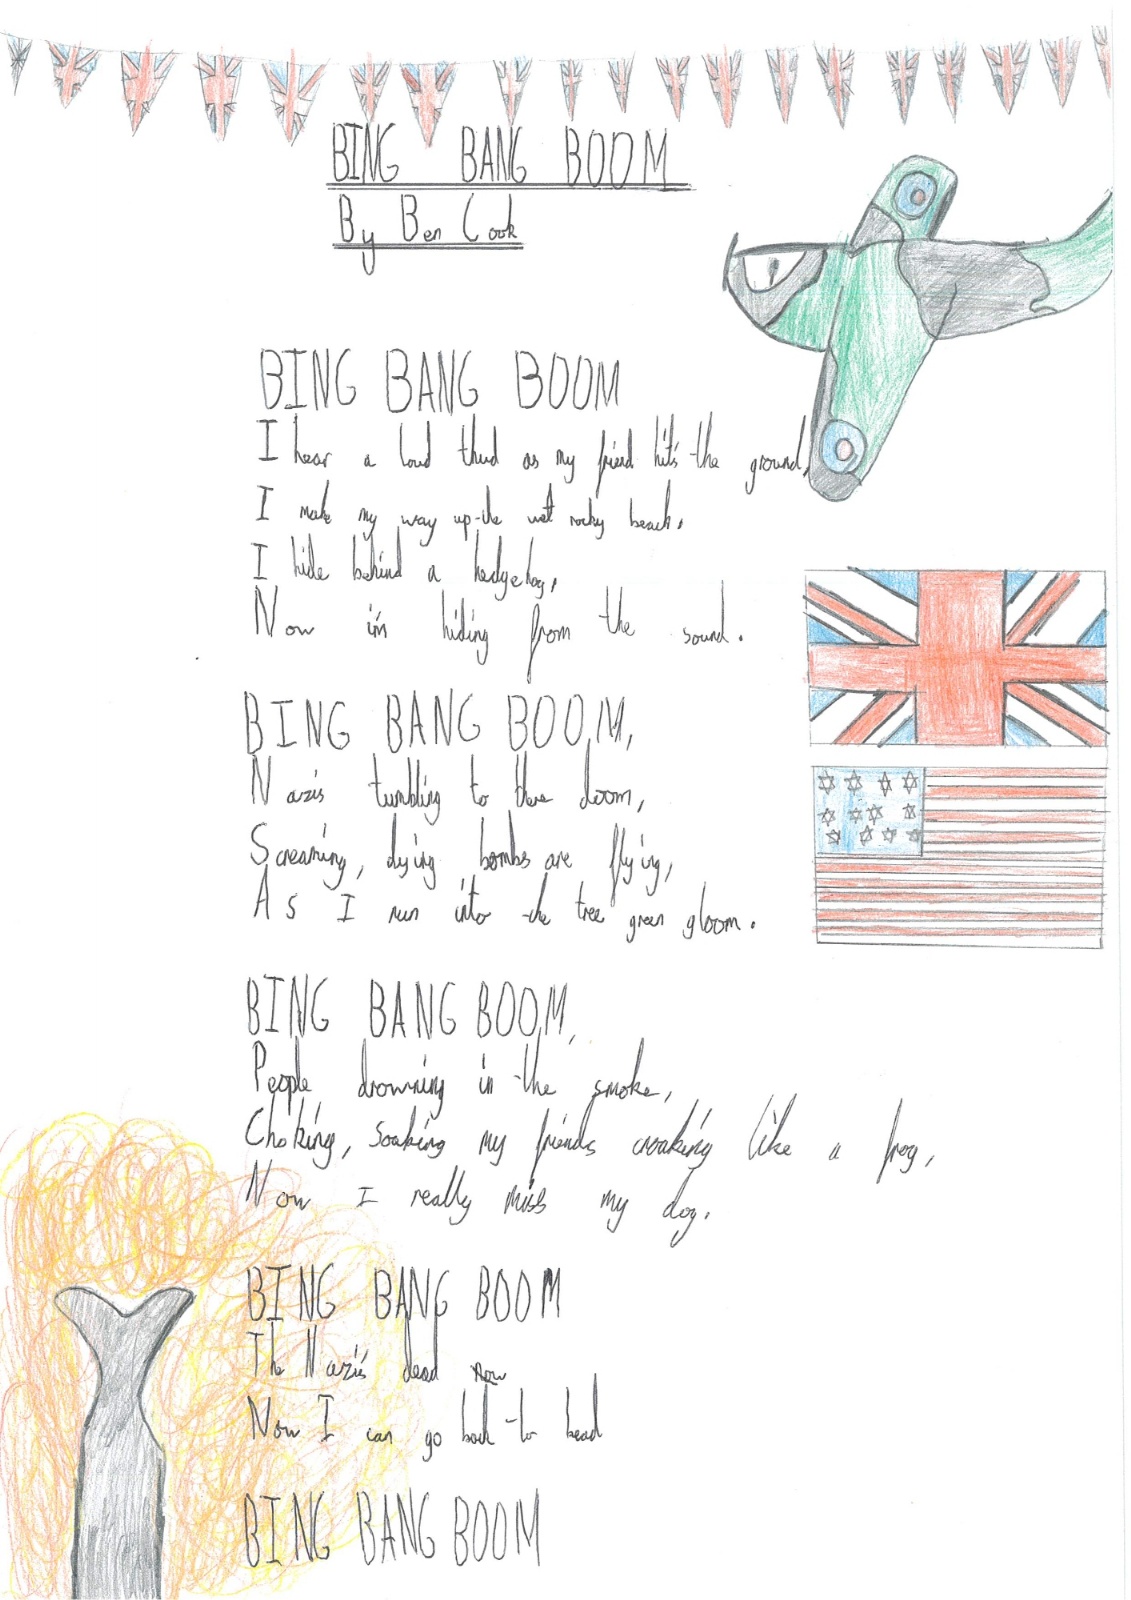 BING BANG BOOM
By Ben Cook
BING BANG BOOM
I hear a loud thud as my friend hits the ground,
I make my way up the wet rocky beach,
I hide behind a hedgehog,
Now im hiding from the sound.
BING BANG BOOM,
Nazis tumbling to there doom,
Screaming, dying bombs are flying,
As I run into the tree green gloom.
BING BANG BOOM,
People drowning in the smoke,
Choking, soaking my friends croaking like a frog,
Now I really miss my dog.
BING BANG BOOM
The Nazis dead now
Now I can go back to bead
BING BANG BOOM